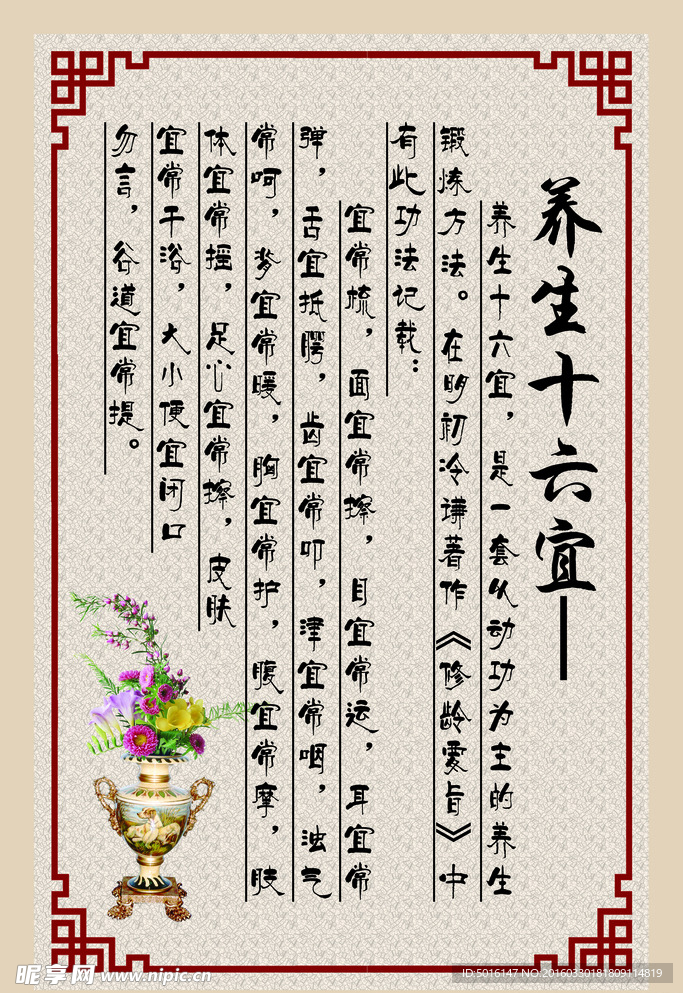 养生十六宜—
养生十六宜，是一套以动功为主的养生
锻炼方法。在明初冷谦著作《修龄要旨》中
有此功法记载：
宜常梳，面宜常擦，目宜常运，耳宜常
弹，舌宜抵腭，齿宜常叩，津宜常咽，浊气
常呵，背宜常暖，胸宜常护，腹宜常摩，肢
体宜常摇，足心宜常擦，皮肤
宜常干浴，大小便宜闭口
勿言，谷道宜常提。
昵享网 www.nipic.cn
ID:5016147 NO:20160330181809114819